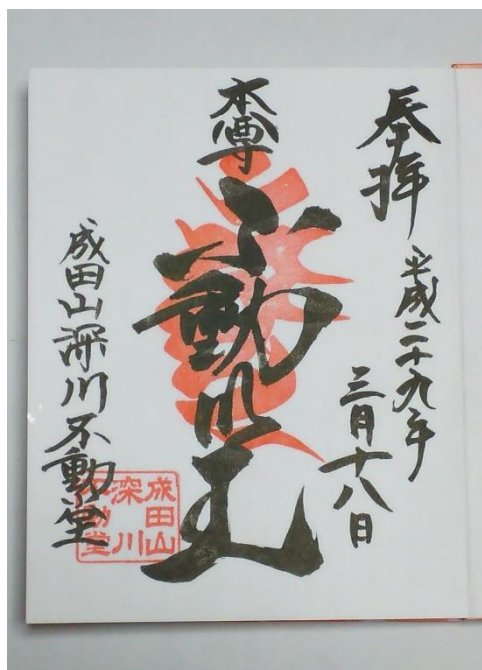 奉拝
平成二十九年
三月十八日
本尊
不動明王
成田山深川不動堂
成田山
深川
不動堂